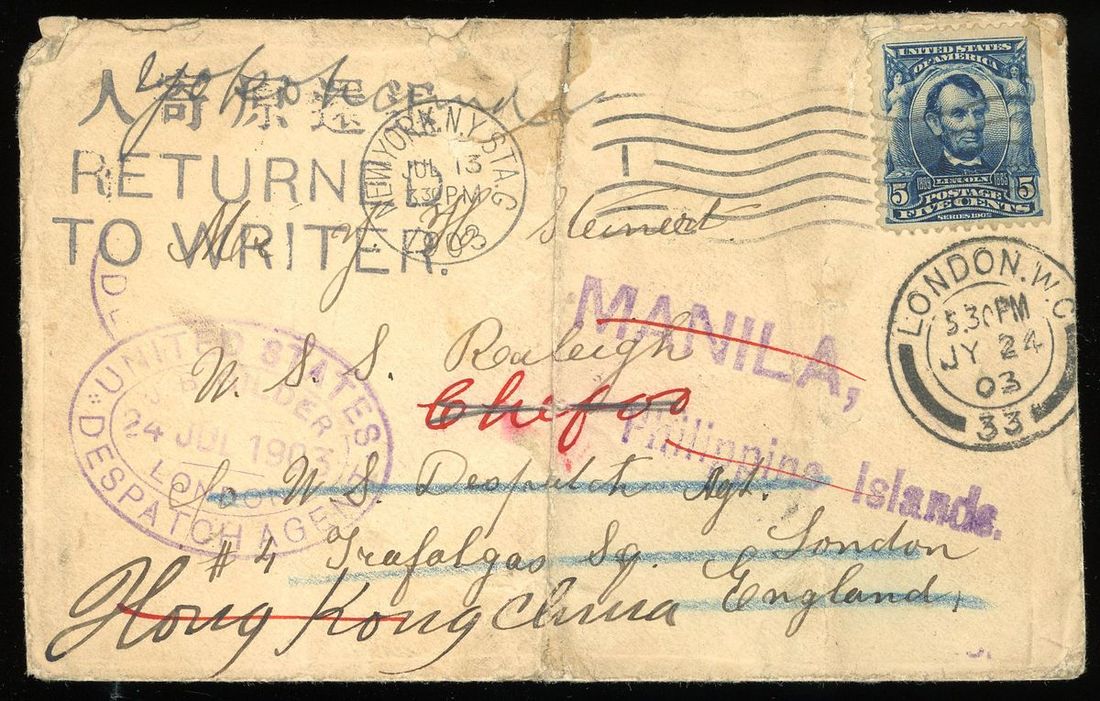 Yokohama
退還原寄人
RETURNED
TO WRITER.
NEW YORK, N.Y. STA. G
JUL 13
330PM
1903
1
UNITED STATES
OF AMERICA
1809 LINCOLN 1865
5 POSTAGE 5
FIVE CENTS
SERIES 1902
Mr J. H. Steinert.
LONDON. W.C
5.30PM
JY 24
03
33
MANILA,
Philippine Islands.
U. S. S. Raleigh
Chifoo
UNITED STATES
24 JUL 1903
LONDON
DESPATCH AGENT
c/o U.S. Despatch Agt.
#4 Trafalgar Sq. London
England,
Hong Kong China